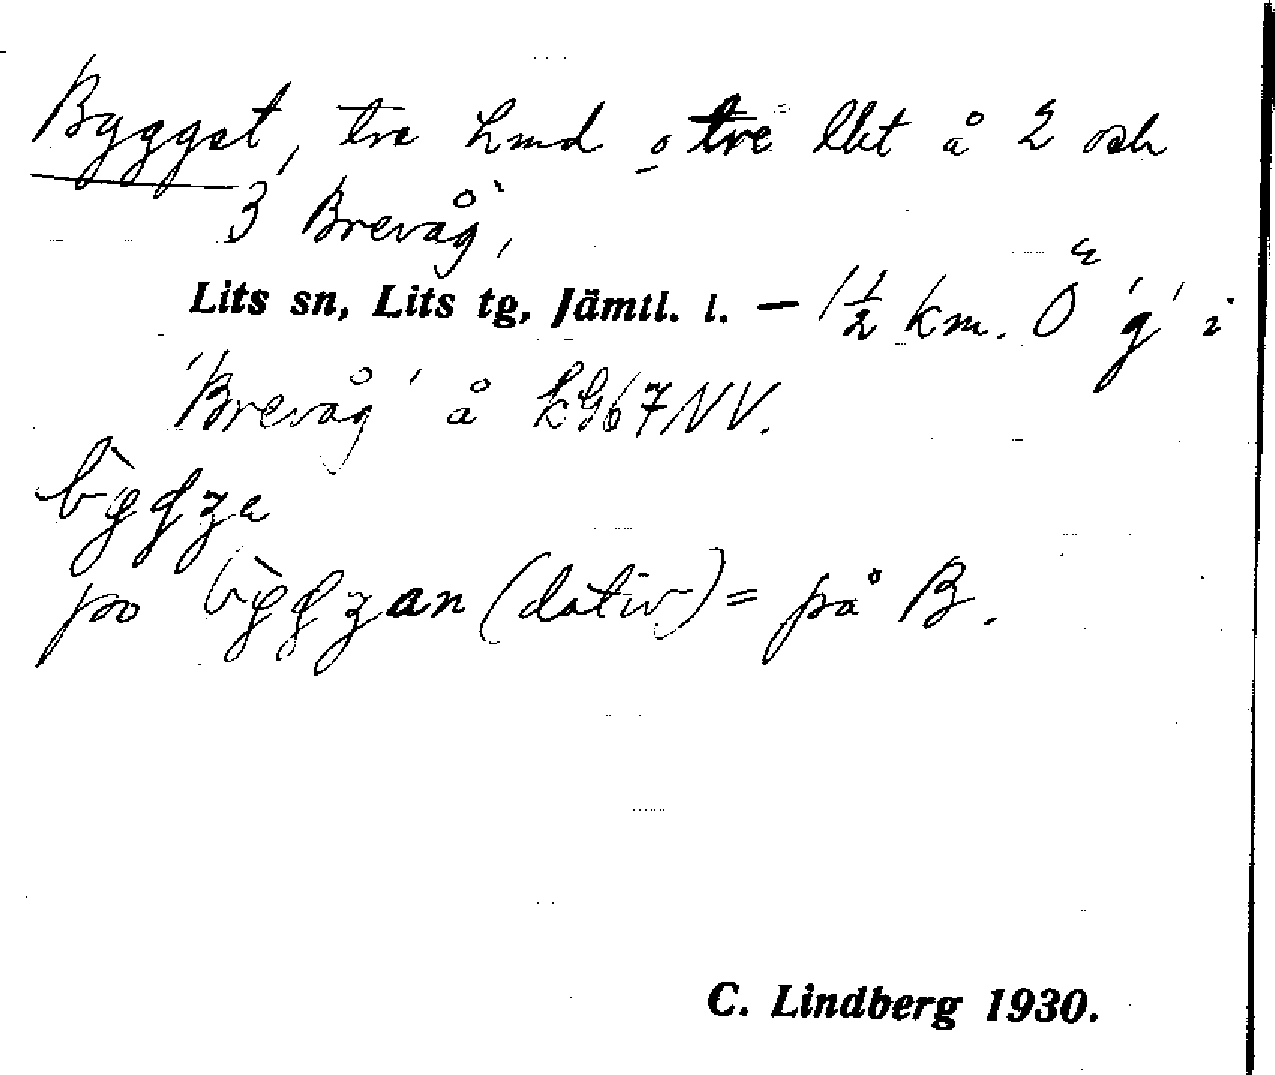 Bygget, tre hmd o tre lht å 2 och
3 Brevåg,
Lits sn, Lits tg, Jämtl. l. — 1 1/2 km. Ö 'g' i
'Brevåg' å kG67NV.
(dativ) = på B.
C. Lindberg 1930.